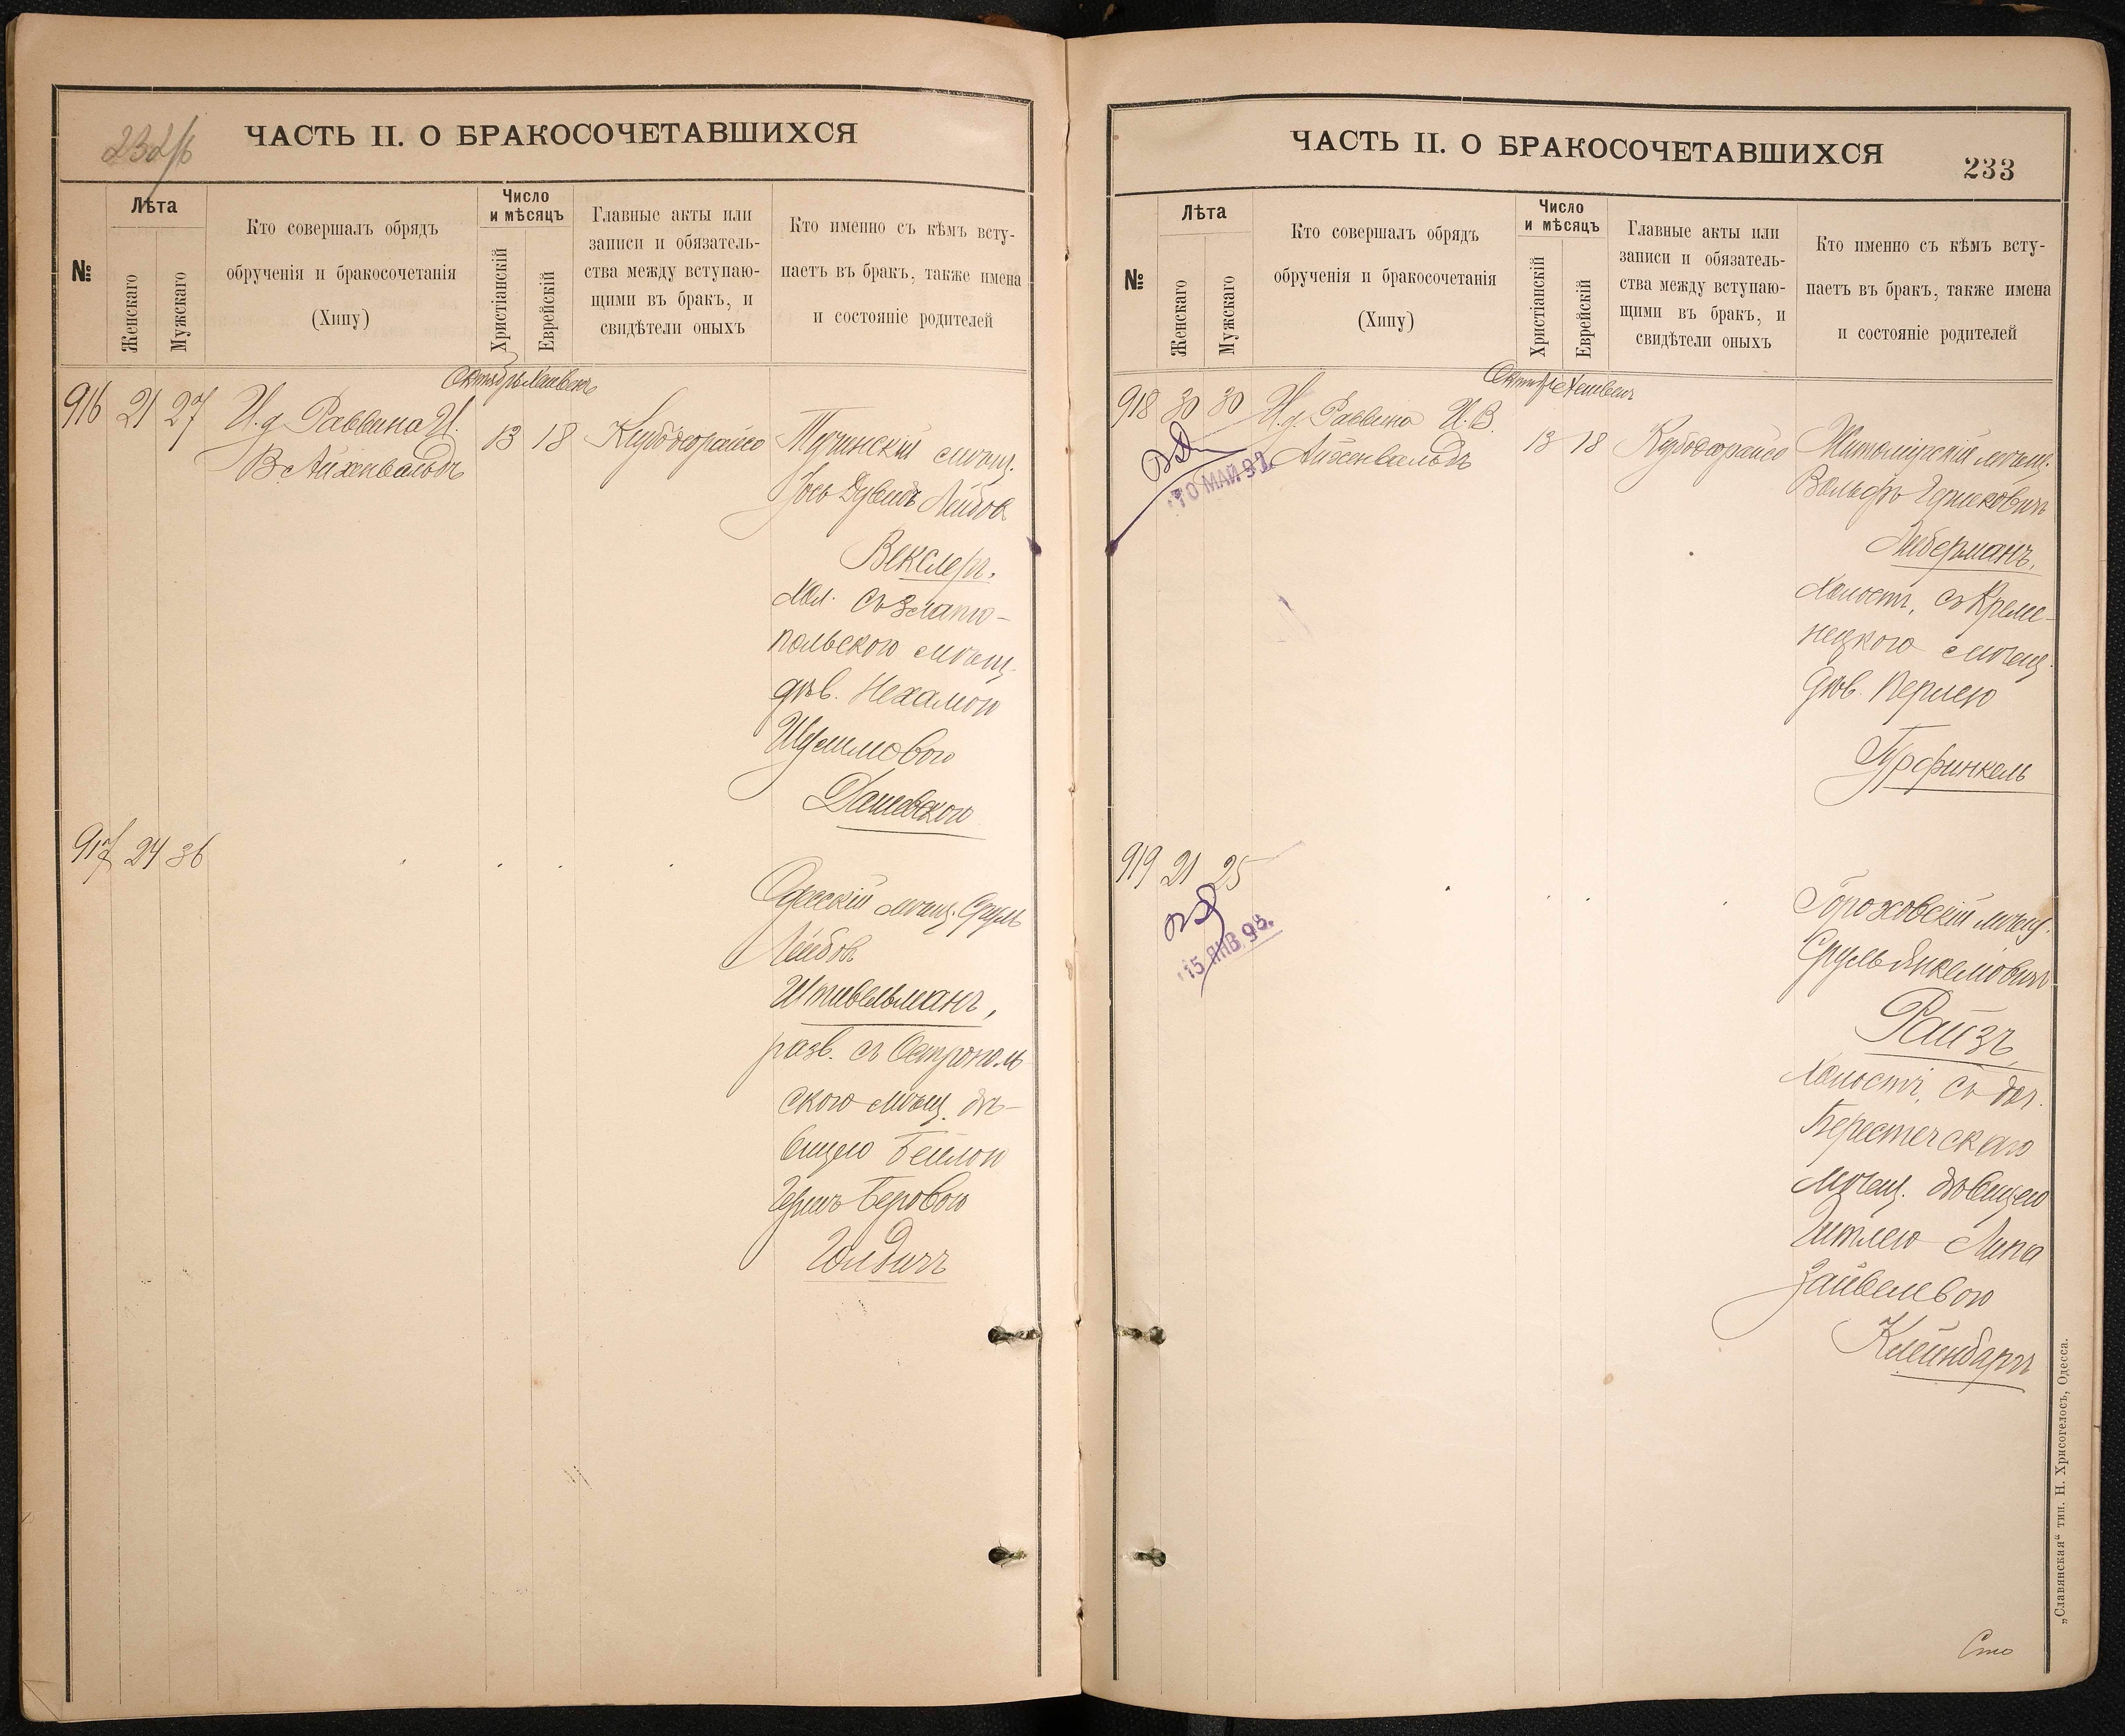 232/б
ЧАСТЬ II. О БРАКОСОЧЕТАВШИХСЯ
№
Лѣта
Женскаго
Мужскаго
Кто совершалъ обрядъ
обрученія и бракосочетанія
(Хипу)
Число
и мѣсяцъ
Христіанскій
Еврейскій
Главные акты или
записи и обязатель-
ства между вступаю-
щими въ бракъ, и
свидѣтели оныхъ
Кто именно съ кѣмъ всту-
паетъ въ бракъ, также имена
и состояніе родителей
Октябрь Хешвенъ
916 21 27 И. д. Раввина И.
В. Айхенвальдъ
13 18
Тучинскій мѣщ.
Дувидъ Лейбов
Векслеръ.
хол. съ Злато-
польскою мѣщ.
дѣв. Нехамою
Шулимовою
Дашевскою
917 24 36
Одесскій мѣщ. Сруль
Лейбов
Штивельманъ,
разв. съ Острополь
скою мѣщ. дѣ-
вицею Бейлою
Гершъ Беровою
Голдичъ
ЧАСТЬ II. О БРАКОСОЧЕТАВШИХСЯ
233
№
Лѣта
Женскаго
Мужскаго
Кто совершалъ обрядъ
обрученія и бракосочетанія
(Хипу)
Число
и мѣсяцъ
Христіанскій
Еврейскій
Главные акты или
записи и обязатель-
ства между вступаю-
щими въ бракъ, и
свидѣтели оныхъ
Кто именно съ кѣмъ всту-
паетъ въ бракъ, также имена
и состояніе родителей
Октябрь Хешвенъ
918 30 30 И. д. Раввина И. В.
Айхенвальдъ
10 МАЙ 97
13 18
Житомірскій мѣщ.
Вольфъ Гершковичъ
Либерманъ,
холостъ, съ Креме-
нецкою мѣщ.
дѣв. Перлею
Гурфинкель
919 21 25
15 ЯНВ. 98.
Гороховскій мѣщ.
Сруль Янкелювичъ
Райзъ
холостъ, съ доч.
Берестечскаго
мѣщ. дѣвицею
Гитлею Липа
Зайвелевою
Клейнбаръ
Сто
„Славянская“ тип. Н. Хрисогелосъ, Одесса.